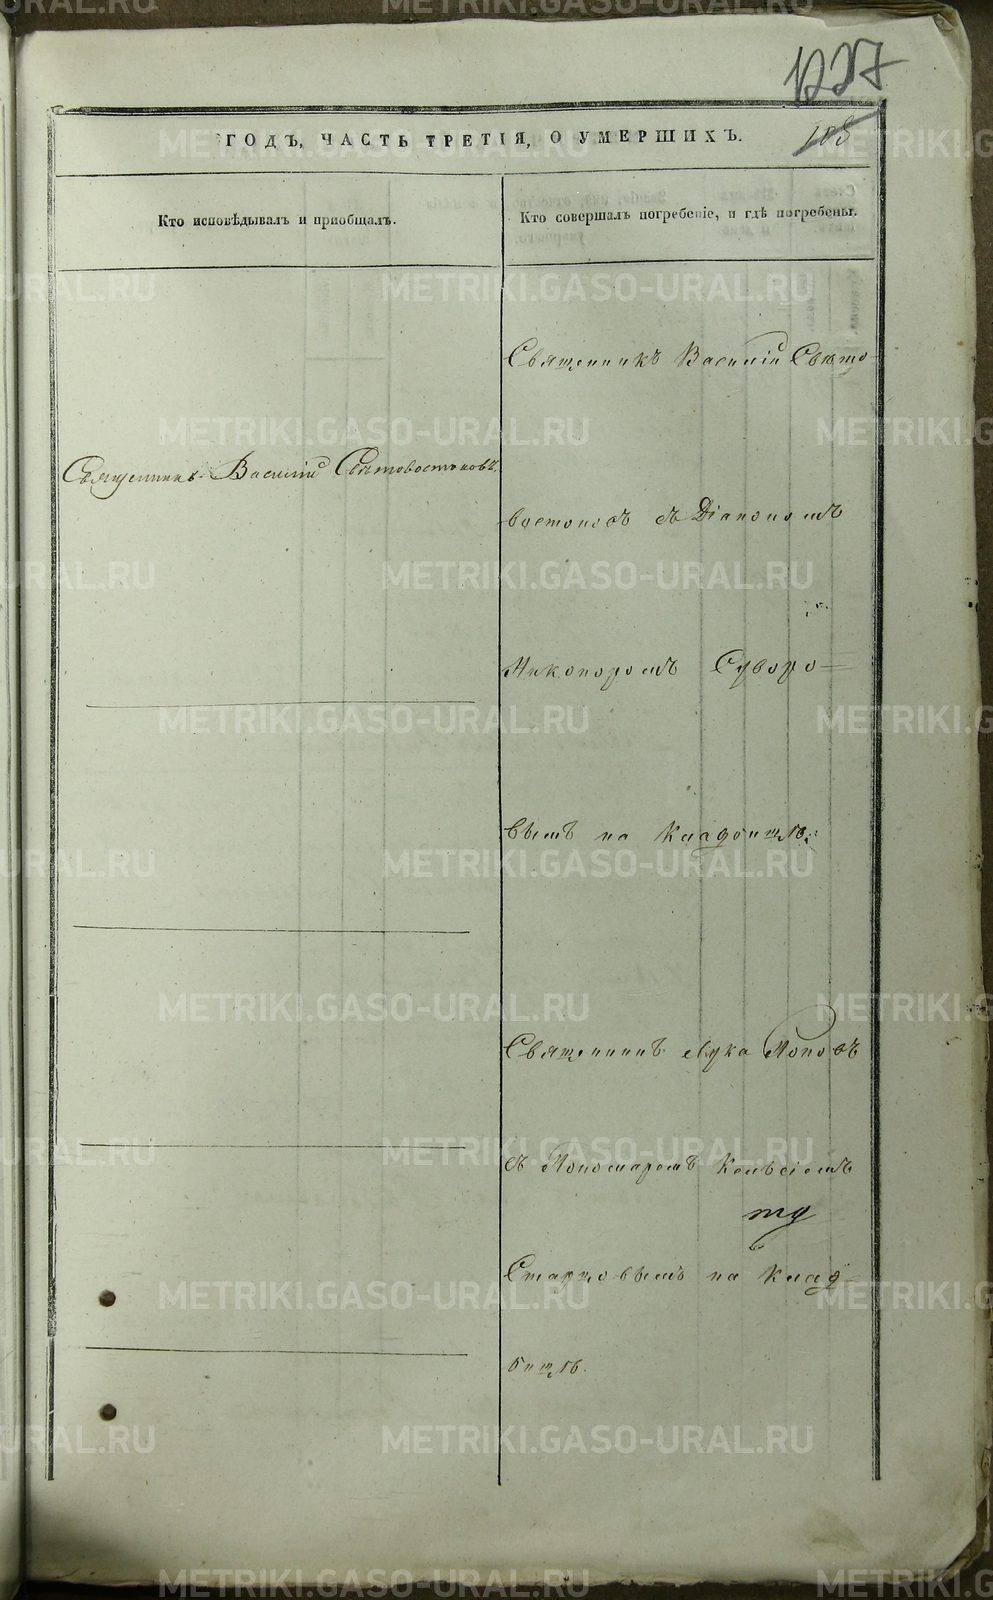 1227
108
ГОДЪ, ЧАСТЬ ТРЕТІЯ, О УМЕРШИХЪ.
Кто исповѣдывалъ и приобщалъ.
Кто совершалъ погребеніе, и гдѣ погребены.
Священникъ Василій Свѣто-
Священникъ Василій Свѣтовостоковъ
востоковъ съ Діакономъ
Никаноромъ Суворо-
вымъ на Кладбищѣ.
Священникъ Лука Поповъ
съ Пономаремъ
Старцовымъ на Клад-
бищѣ.
METRIKI.GASO-URAL.RU